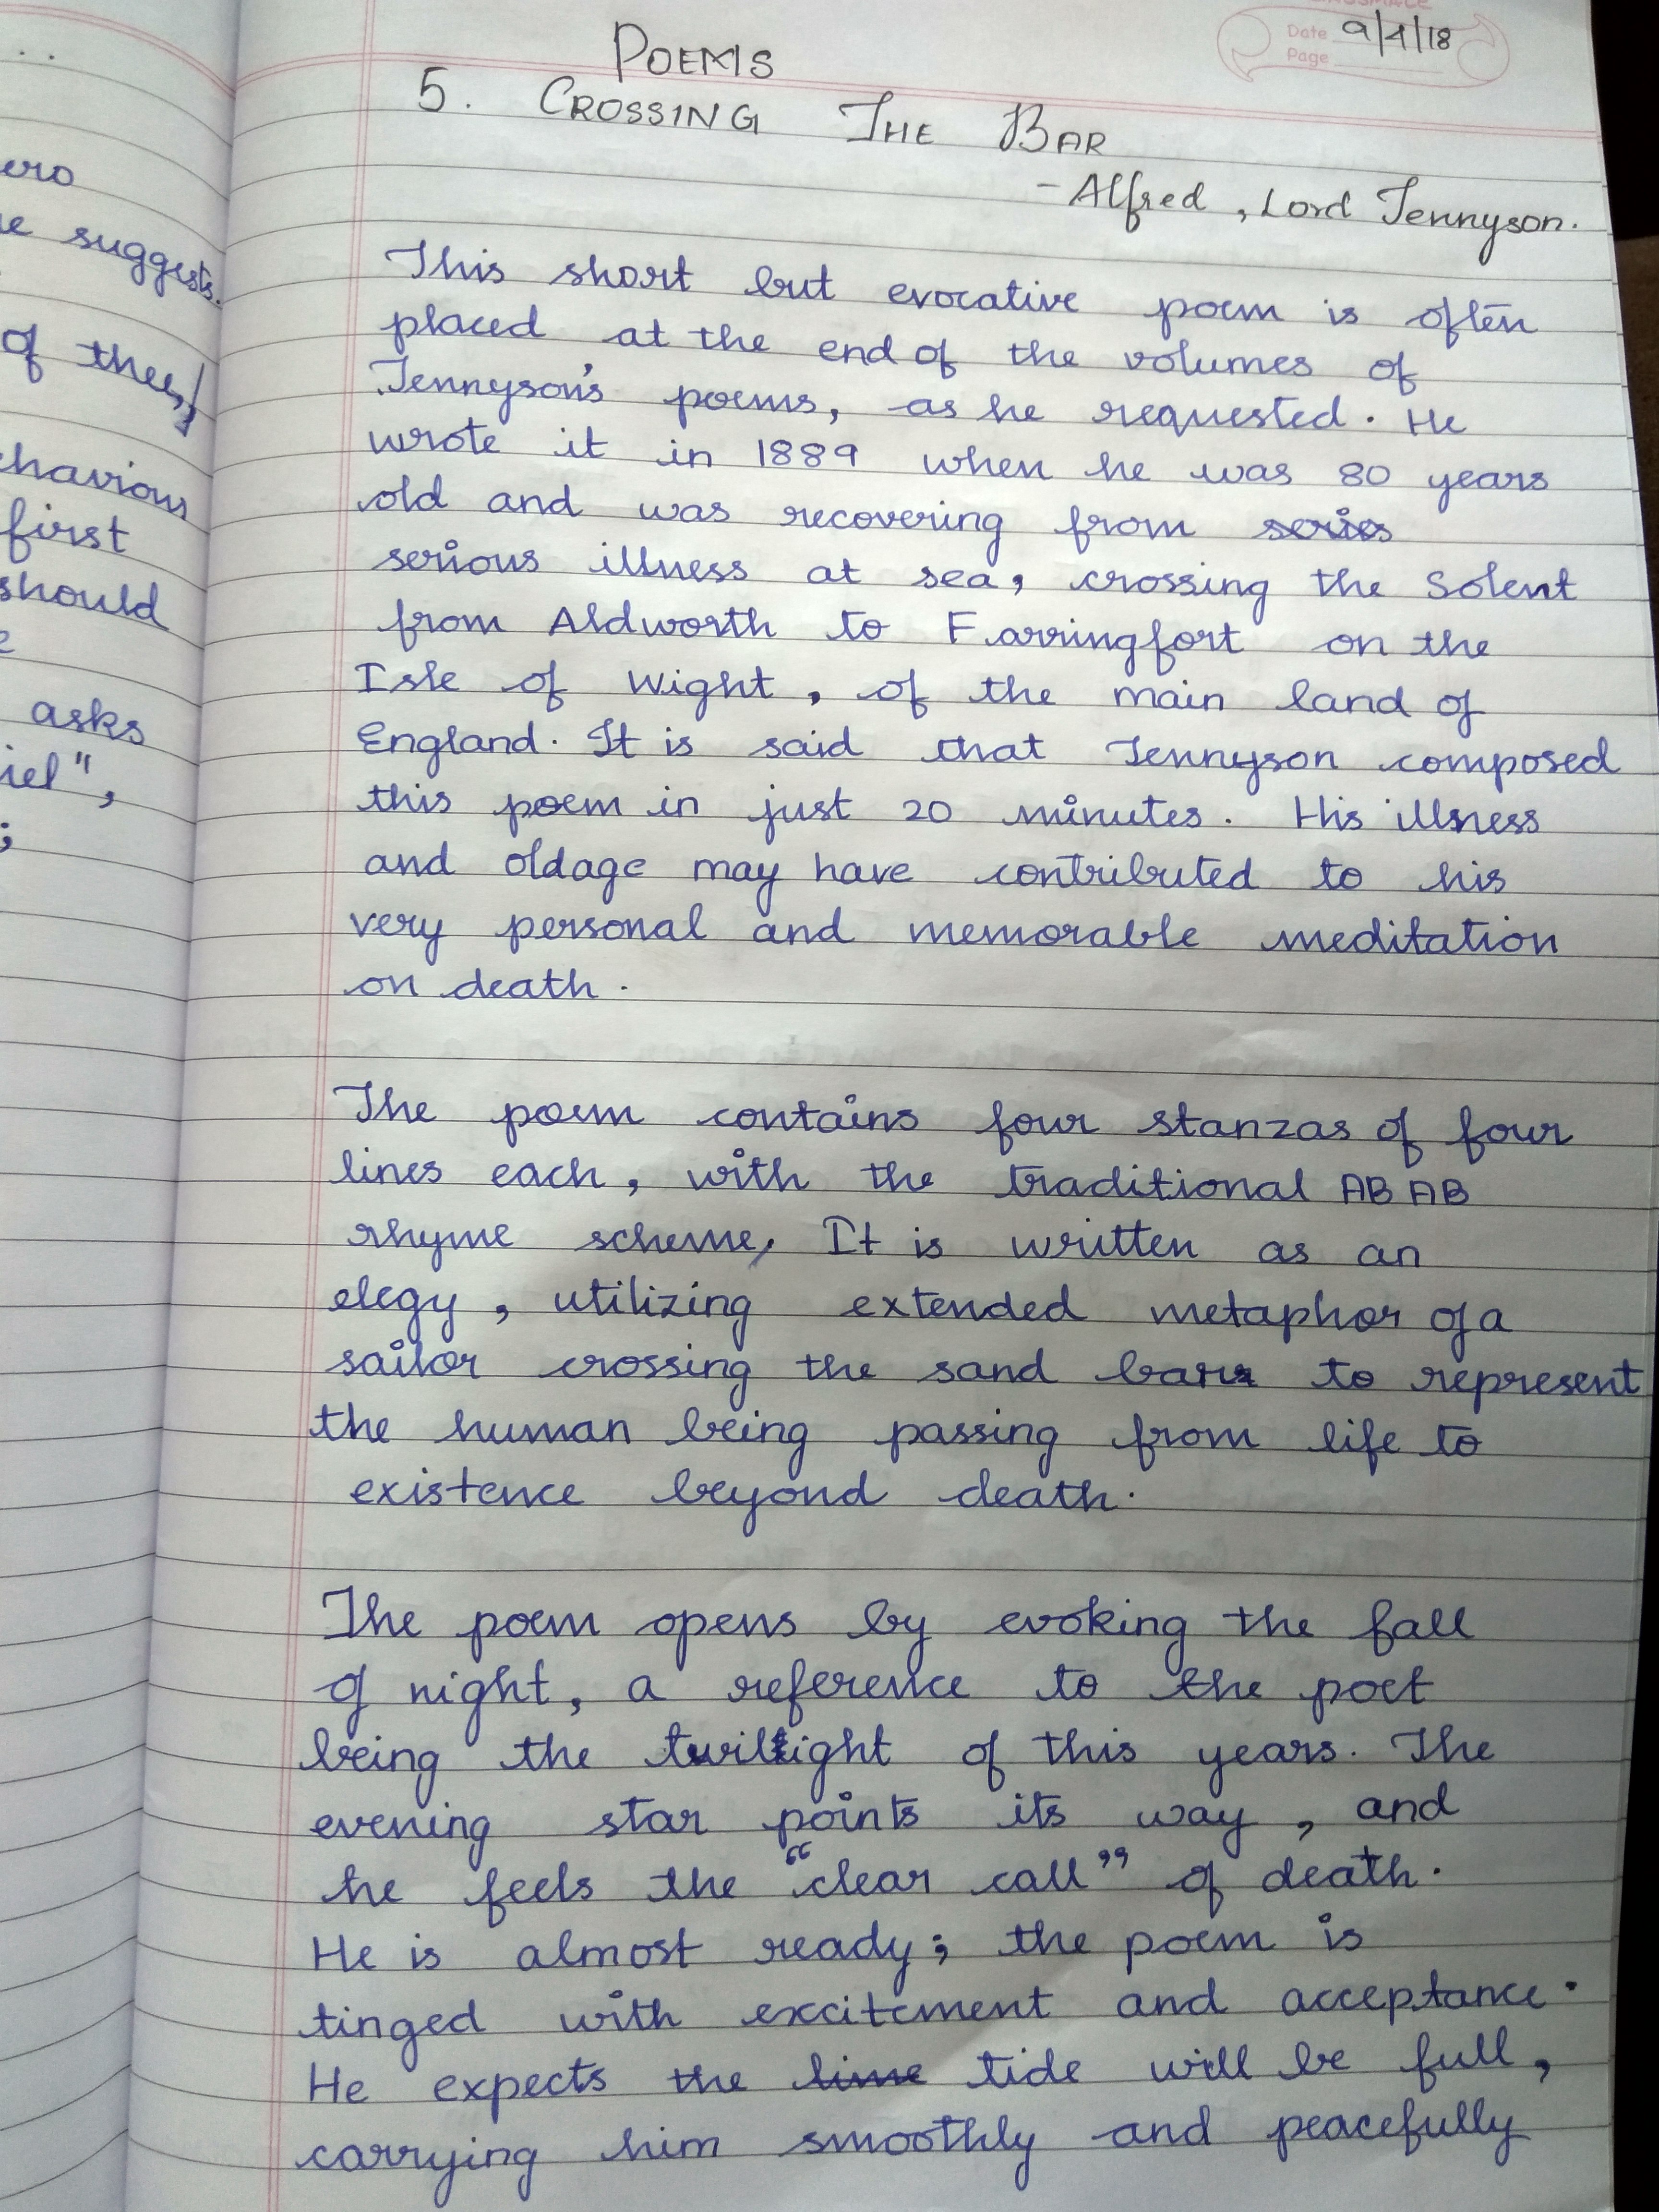 ero
e suggests.
of thee,/
haviour
first
should
e
asks
iel",
;
Date 9/4/18
Page
POEMS
5. CROSSING THE BAR
- Alfred, Lord Tennyson.
This short but evocative poem is often
placed at the end of the volumes of
Tennyson's poems, as he requested. He
wrote it in 1889 when he was 80 years
old and was recovering from series
serious illness at sea, crossing the Solent
from Aldworth to Farringfort on the
Isle of Wight, of the main land of
England. It is said that Tennyson composed
this poem in just 20 minutes. His illness
and oldage may have contributed to his
very personal and memorable meditation
on death.
The poem contains four stanzas of four
lines each, with the traditional ABAB
rhyme scheme. It is written as an
elegy, utilizing extended metaphor of a
sailor crossing the sand bar to represent
the human being passing from life to
existence beyond death.
The poem opens by evoking the fall
of night, a reference to the poet
being the twilight of this years. The
evening star points its way, and
he feels the "clear call" of death.
He is almost ready; the poem is
tinged with excitement and acceptance.
He expects the time tide will be full,
carrying him smoothly and peacefully